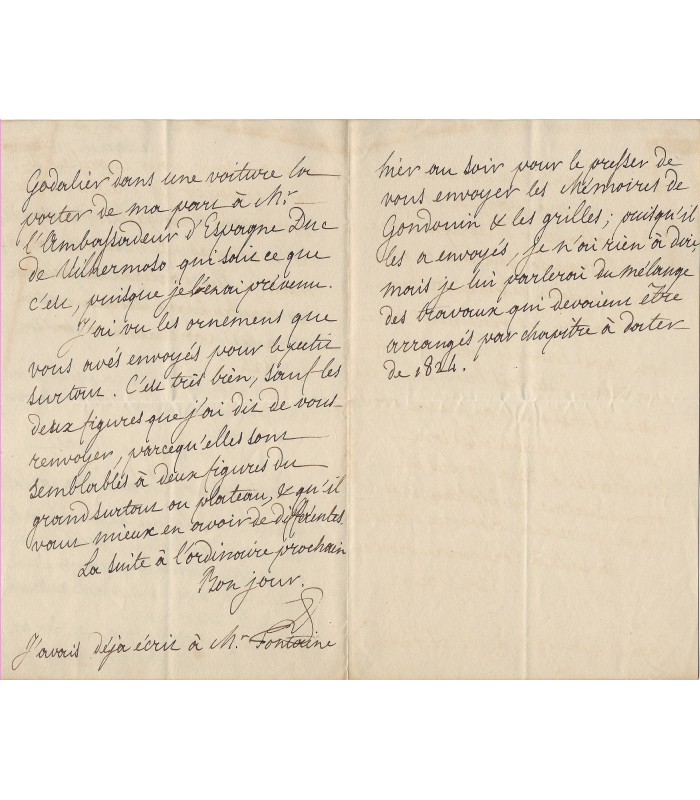 Godalier dans une voiture la
porter de ma part à Mr.
l'Ambassadeur d'Espagne Duc
de Vilhermoso qui sait ce que
c'est, puisque je l'en ai prévenu.
J'ai vu les ornemens que
vous avés envoyés pour le petit
surtout. C'est très bien, sauf les
deux figures que j'ai dit de vous
renvoyer, parcequ'elles sont
semblables à deux figures du
grand surtout ou plateau, & qu'il
vaut mieux en avoir de différentes.
La suite à l'ordinaire prochain
Bon jour.
J'avais déja écrit à Mr. Fontaine
hier au soir pour le presser de
vous envoyer les Mémoires de
Gondouin & les grilles; puisqu'il
les a envoyés, Je n'ai rien à dire,
mais je lui parlerai du mélange
des travaux qui devaient être
arrangés par chapitre à dater
de 1824.